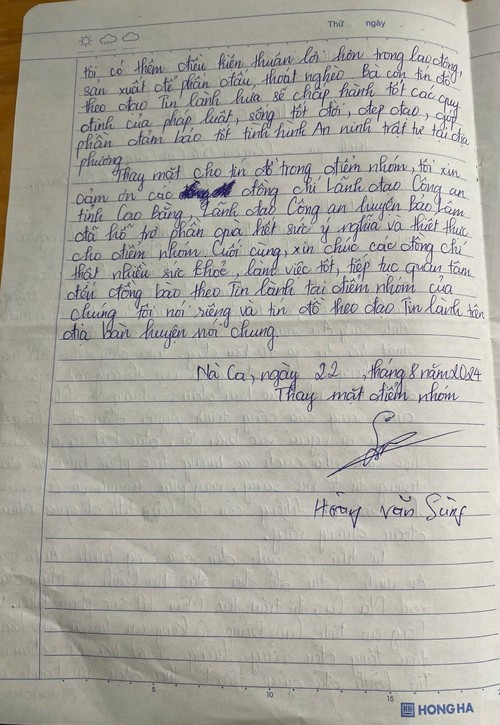 Thứ ngày
tôi, có thêm điều kiện thuận lợi hơn trong lao động,
sản xuất để phấn đấu, thoát nghèo. Bà con tín đồ
theo đạo Tin lành hứa sẽ chấp hành tốt các quy
định của pháp luật, sống tốt đời, đẹp đạo, góp
phần đảm bảo tốt tình hình An ninh trật tự tại địa
phương.
Thay mặt cho tín đồ trong điểm nhóm, tôi xin
cảm ơn các đồng chí Lãnh đạo Công an
tỉnh Cao Bằng, Lãnh đạo Công an huyện Bảo Lâm
đã hỗ trợ phần quà hết sức ý nghĩa và thiết thực
cho điểm nhóm. Cuối cùng, xin chúc các đồng chí
thật nhiều sức khoẻ, làm việc tốt, tiếp tục quan tâm
đến đồng bào theo Tin lành tại điểm nhóm của
chúng tôi nói riêng và tín đồ theo đạo Tin lành trên
địa bàn huyện nói chung.
Nà Ca, ngày 22, tháng 8 năm 2024
Thay mặt điểm nhóm
Hoàng Văn Sùng
5 10 15
HONG HA